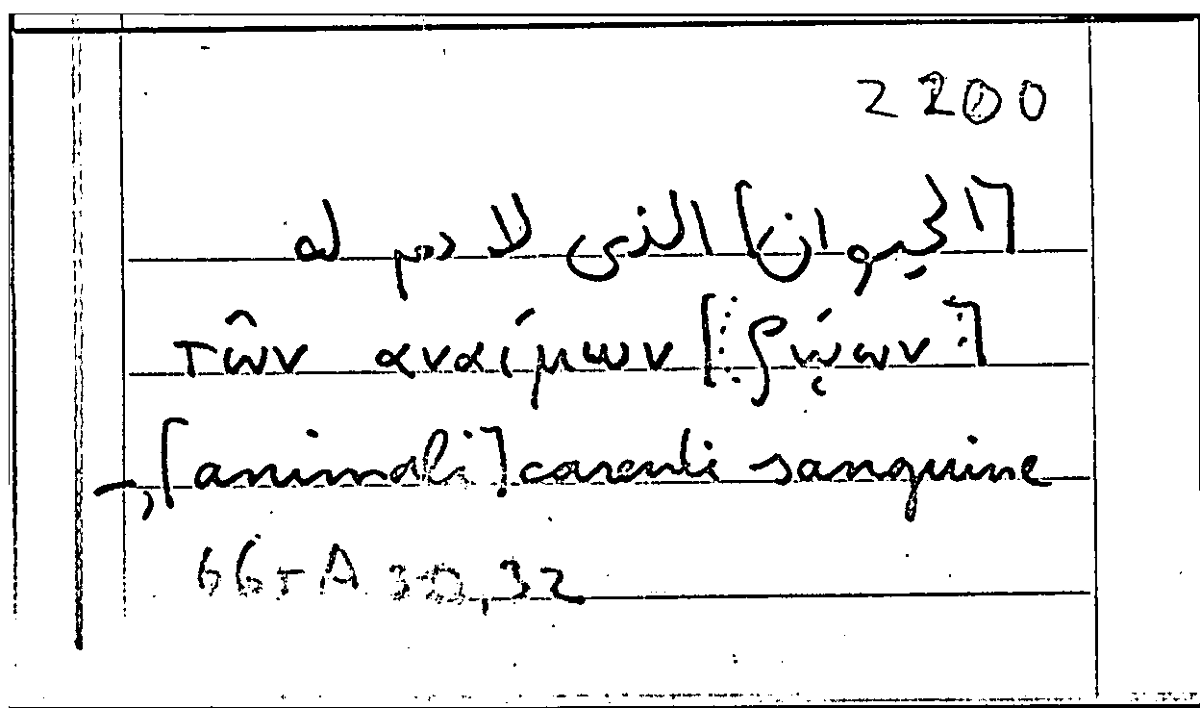 2200
[الحيوان] الذى لا دم له
τῶν αναίμων [ζῴων]
→ [animali] carenti sanguine
665A 30,32